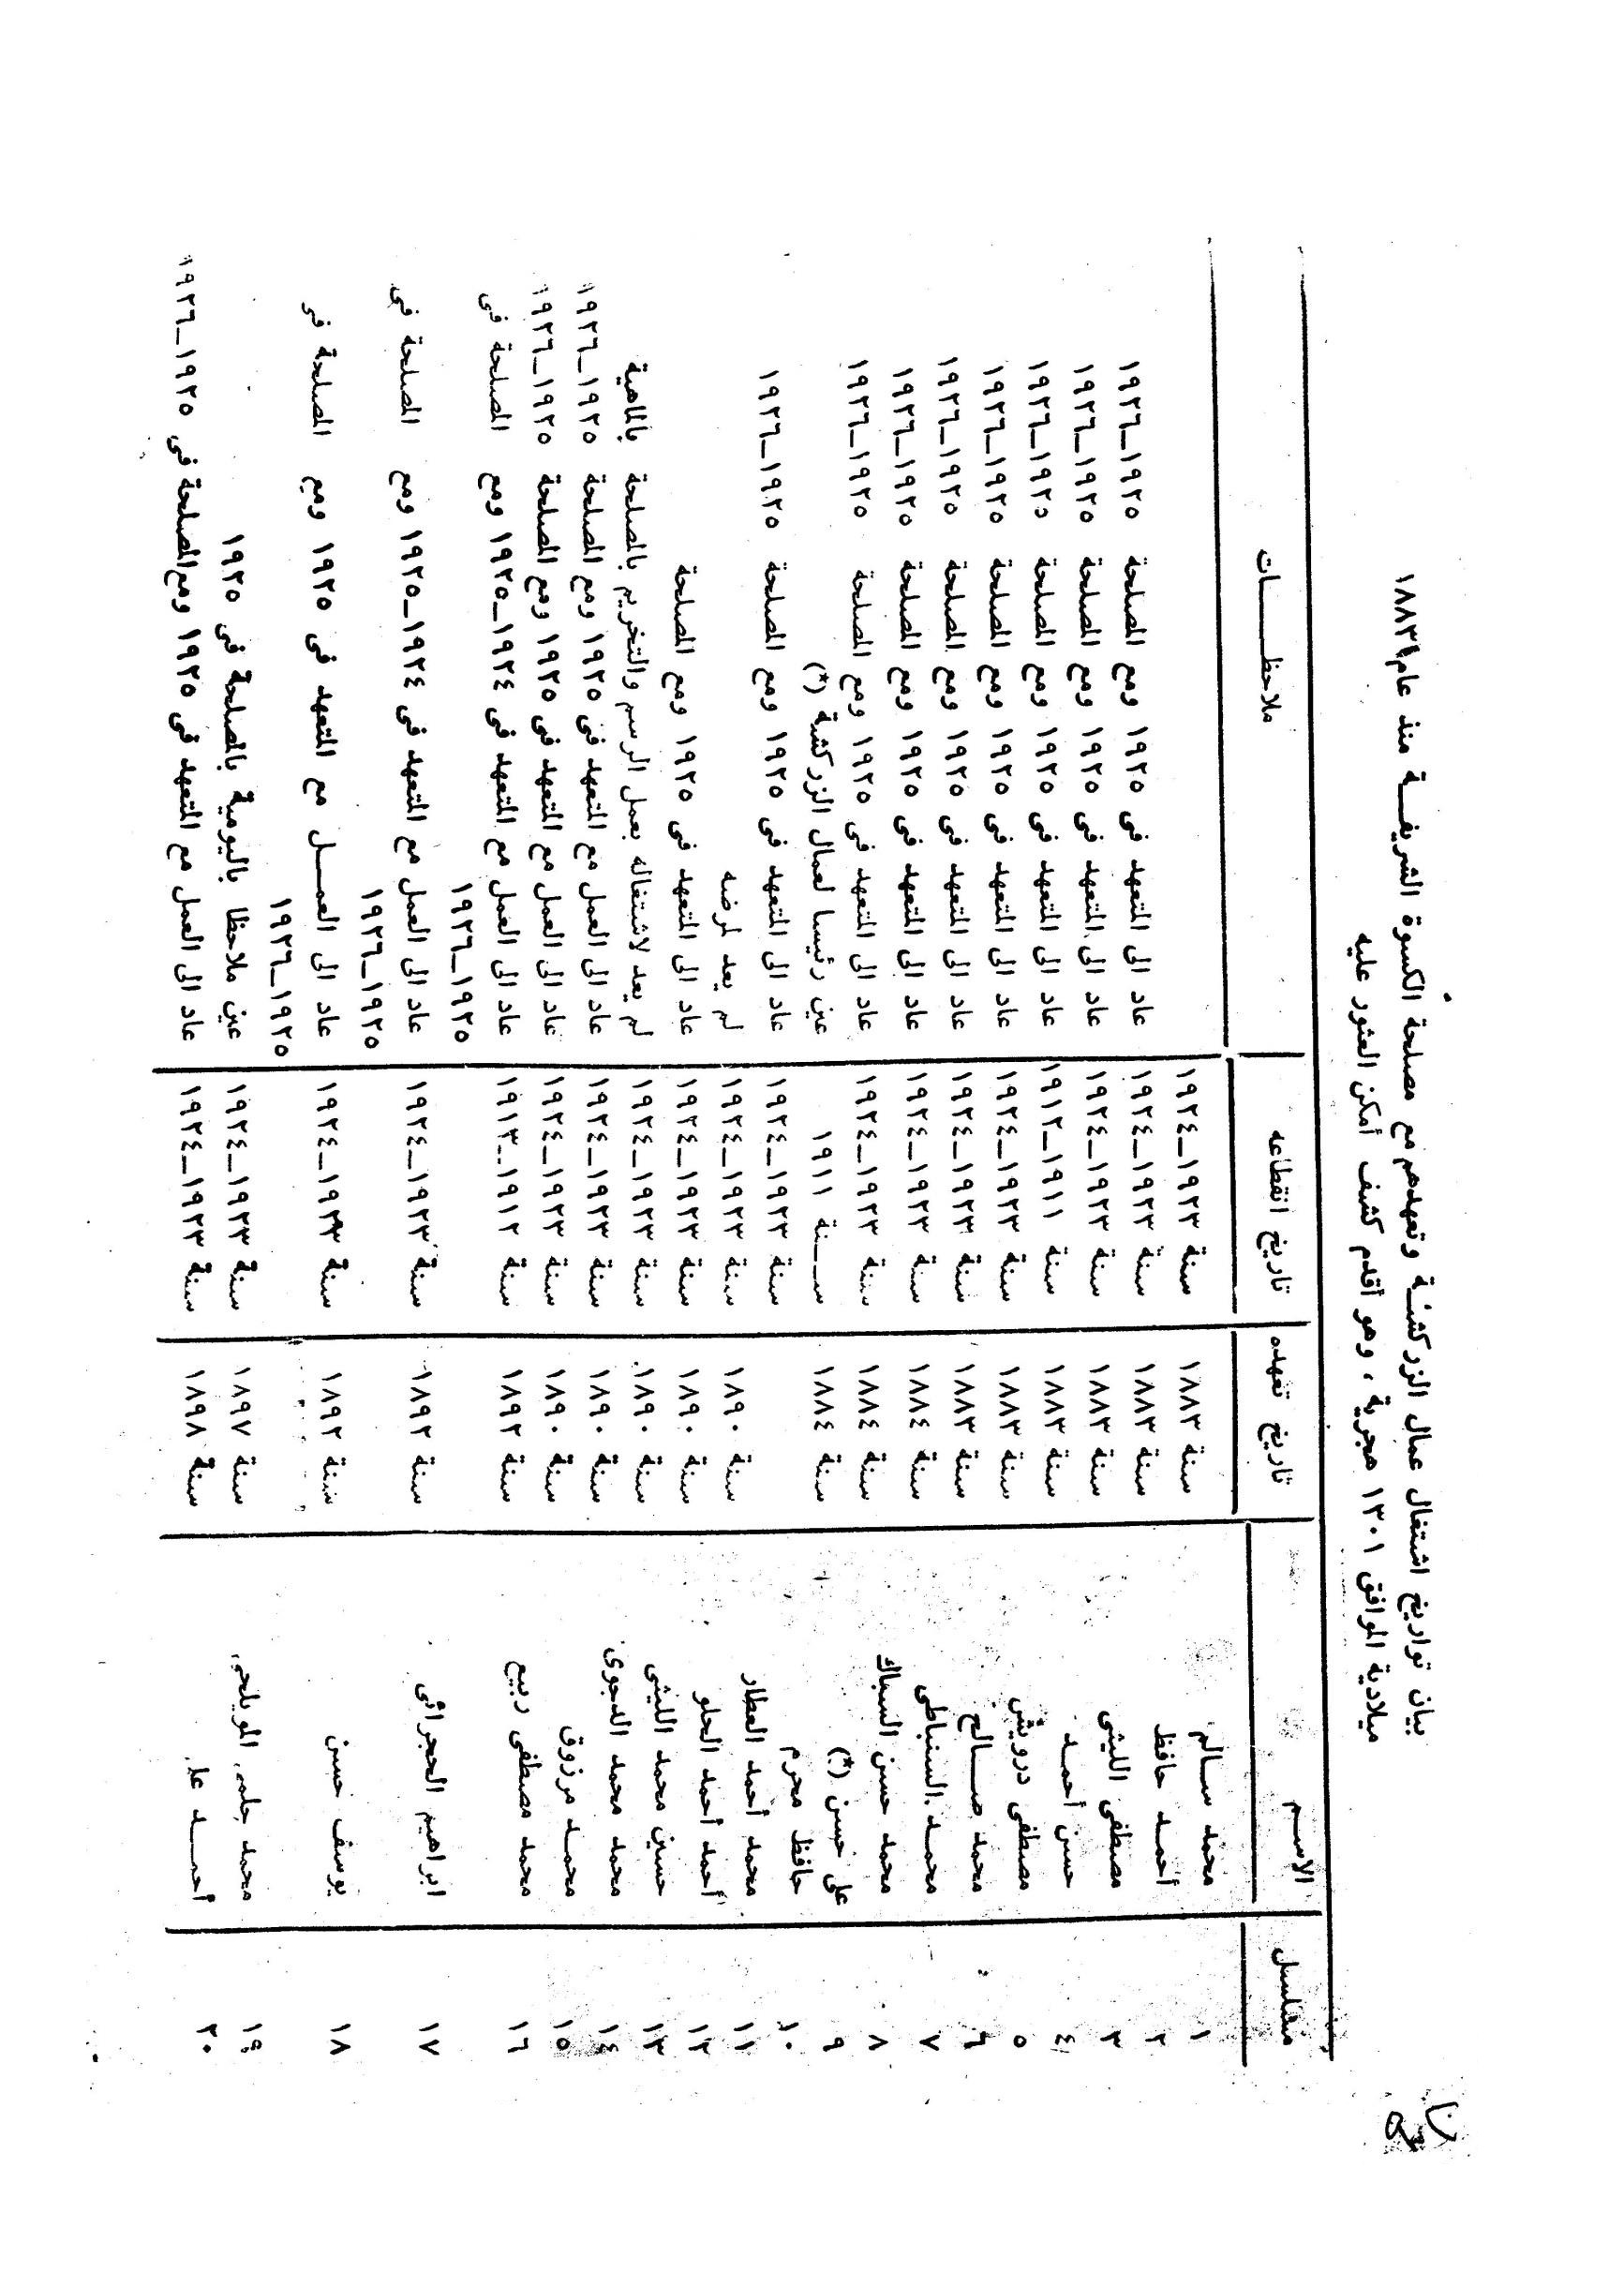 بيان تواريخ اشتغال عمال الزركشة وتعهدهم مع مصلحة الكسوة الشريفة منذ عام ١٨٨٣
ميلادية الموافق ١٣٠١ هجرية ، وهو أقدم كشف أمكن العثور عليه
متسلسل الاسم تاريخ تعهده تاريخ انقطاعه ملاحظات
١ محمد سالم سنة ١٨٨٣ سنة ١٩٢٣-١٩٢٤
٢ أحمد حافظ سنة ١٨٨٣ سنة ١٩٢٣-١٩٢٤ عاد الى المتعهد فى ١٩٢٥ ومع المصلحة ١٩٢٥-١٩٢٦
٣ مصطفى الليثى سنة ١٨٨٣ سنة ١٩٢٣-١٩٢٤ عاد الى المتعهد فى ١٩٢٥ ومع المصلحة ١٩٢٥-١٩٢٦
٤ حسن أحمد سنة ١٨٨٣ سنة ١٩١١-١٩١٢ عاد الى المتعهد فى ١٩٢٥ ومع المصلحة ١٩٢٥-١٩٢٦
٥ مصطفى درويش سنة ١٨٨٣ سنة ١٩٢٣-١٩٢٤ عاد الى المتعهد فى ١٩٢٥ ومع المصلحة ١٩٢٥-١٩٢٦
٦ محمد صالح سنة ١٨٨٣ سنة ١٩٢٣-١٩٢٤ عاد الى المتعهد فى ١٩٢٥ ومع المصلحة ١٩٢٥-١٩٢٦
٧ محمد السنباطى سنة ١٨٨٤ سنة ١٩٢٣-١٩٢٤ عاد الى المتعهد فى ١٩٢٥ ومع المصلحة ١٩٢٥-١٩٢٦
٨ محمد حسن السباك سنة ١٨٨٤ سنة ١٩٢٣-١٩٢٤ عاد الى المتعهد فى ١٩٢٥ ومع المصلحة ١٩٢٥-١٩٢٦
٩ على حسن (*) سنة ١٨٨٤ سنة ١٩١١ عين رئيسا لعمال الزركشة (*)
١٠ حافظ محرم سنة ١٩٢٣-١٩٢٤ عاد الى المتعهد فى ١٩٢٥ ومع المصلحة ١٩٢٥-١٩٢٦
١١ محمد أحمد العطار سنة ١٨٩٠ سنة ١٩٢٣-١٩٢٤ لم يعد لمرضه
١٢ أحمد أحمد الحلو سنة ١٨٩٠ سنة ١٩٢٣-١٩٢٤ عاد الى المتعهد فى ١٩٢٥ ومع المصلحة
١٣ حسين محمد الليثى سنة ١٨٩٠ سنة ١٩٢٣-١٩٢٤ لم يعد لاشتغاله بعمل الرسم والتخريم بالمصلحة بالماهية
١٤ محمد محمد الدجوى سنة ١٨٩٠ سنة ١٩٢٣-١٩٢٤ عاد الى العمل مع المتعهد فى ١٩٢٥ ومع المصلحة ١٩٢٥-١٩٢٦
١٥ محمد مرزوق سنة ١٨٩٠ سنة ١٩٢٣-١٩٢٤ عاد الى العمل مع المتعهد فى ١٩٢٥ ومع المصلحة ١٩٢٥-١٩٢٦
١٦ محمد مصطفى ربيع سنة ١٨٩٢ سنة ١٩١٢-١٩١٣ عاد الى العمل مع المتعهد فى ١٩٢٤-١٩٢٥ ومع المصلحة فى
١٩٢٥-١٩٢٦
١٧ ابراهيم الحجرانى سنة ١٨٩٢ سنة ١٩٢٣-١٩٢٤ عاد الى العمل مع المتعهد فى ١٩٢٤-١٩٢٥ ومع المصلحة فى
١٩٢٥-١٩٢٦
١٨ يوسف حسن سنة ١٨٩٢ سنة ١٩٢٣-١٩٢٤ عاد الى العمل مع المتعهد فى ١٩٢٥ ومع المصلحة فى
١٩٢٥-١٩٢٦
١٩ محمد حلمى المويلحى سنة ١٨٩٧ سنة ١٩٢٣-١٩٢٤ عين ملاحظا باليومية بالمصلحة فى ١٩٢٥
٢٠ أحمد على سنة ١٨٩٨ سنة ١٩٢٣-١٩٢٤ عاد الى العمل مع المتعهد فى ١٩٢٥ ومع المصلحة فى ١٩٢٥-١٩٢٦